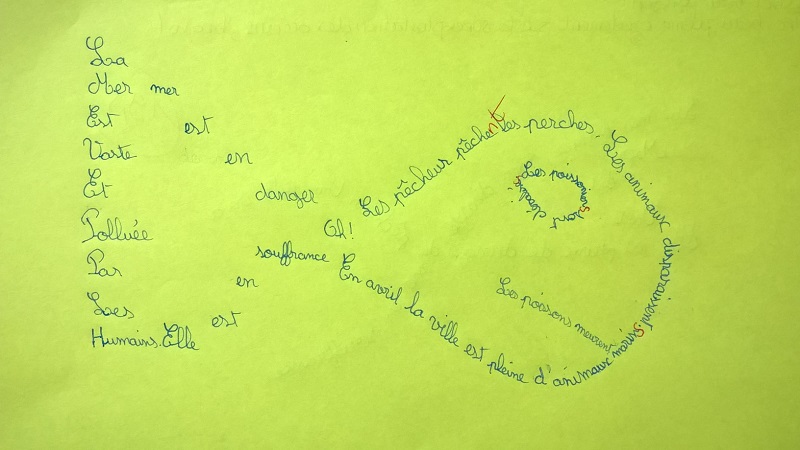 La
Mer mer
Est est
Vaste en
Et danger
Polluée Oh!
Par souffrance
Les en
Humains. Elle est
Les pêcheur pêchent les perches.
Les animaux disparaissent
Les poissons sont décédés
Les poissons meurent
En avril la ville est pleine d'animaux marins